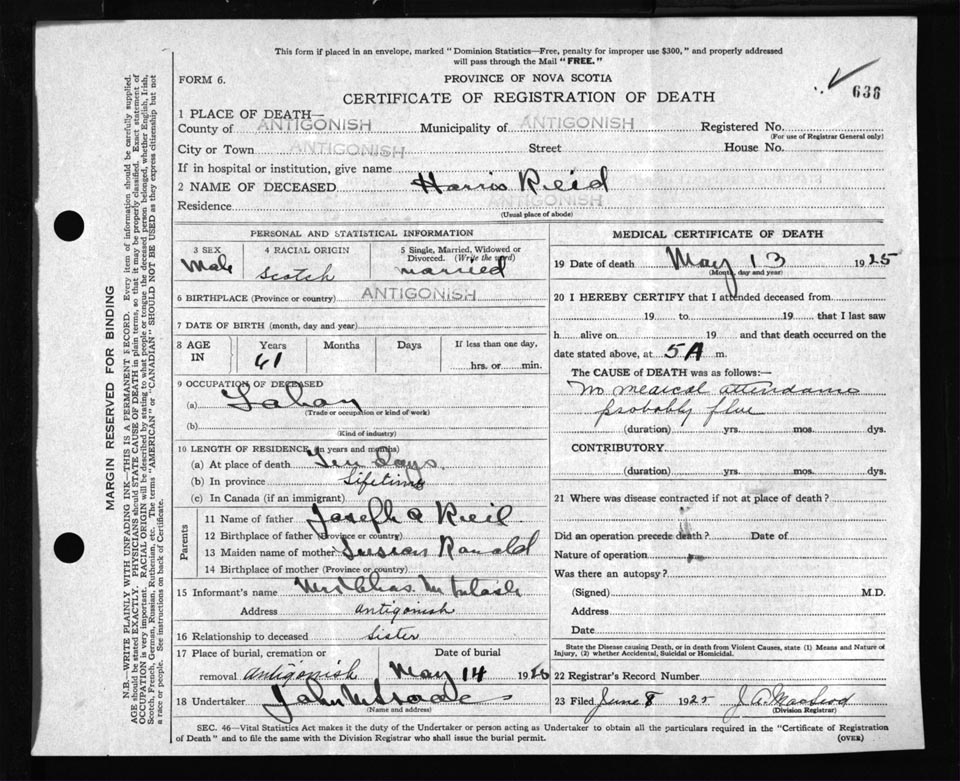 This form if placed in an envelope, marked "Dominion Statistics—Free, penalty for improper use $300," and properly addressed
will pass through the Mail "FREE."
FORM 6.
PROVINCE OF NOVA SCOTIA
636
CERTIFICATE OF REGISTRATION OF DEATH
1 PLACE OF DEATH—
County of ANTIGONISH Municipality of ANTIGONISH Registered No.
(For use of Registrar General only)
City or Town ANTIGONISH Street House No.
If in hospital or institution, give name
2 NAME OF DECEASED Harris Reid
Residence ANTIGONISH
(Usual place of abode)
PERSONAL AND STATISTICAL INFORMATION
3 SEX 4 RACIAL ORIGIN 5 Single, Married, Widowed or
Divorced. (Write the word)
Male Scotch married
6 BIRTHPLACE (Province or country) ANTIGONISH
7 DATE OF BIRTH (month, day and year)
8 AGE Years Months Days If less than one day,
IN 61 hrs. or min.
9 OCCUPATION OF DECEASED
(a)
(Trade or occupation or kind of work)
(b)
(Kind of industry)
10 LENGTH OF RESIDENCE (in years and months)
(a) At place of death Ten days
(b) In province Lifetime
(c) In Canada (if an immigrant)
Parents
11 Name of father Joseph
12 Birthplace of father (Province or country)
13 Maiden name of mother Ronald
14 Birthplace of mother (Province or country)
15 Informant's name Mrs Chas
Address Antigonish
16 Relationship to deceased Sister
17 Place of burial, cremation or Date of burial
removal Antigonish May 14 192
18 Undertaker John
(Name and address)
MEDICAL CERTIFICATE OF DEATH
19 Date of death May 13 1925
(Month, day and year)
20 I HEREBY CERTIFY that I attended deceased from
19 to 19 that I last saw
h alive on 19 and that death occurred on the
date stated above, at 5 A m.
The CAUSE OF DEATH was as follows:—
No medical attendance
probably flue
(duration) yrs. mos. dys.
CONTRIBUTORY
(duration) yrs. mos. dys.
21 Where was disease contracted if not at place of death?
Did an operation precede death? Date of
Nature of operation
Was there an autopsy?
(Signed) M.D.
Address
Date
State the Disease causing Death, or in death from Violent Causes, state (1) Means and Nature of
Injury, (2) whether Accidental, Suicidal or Homicidal.
22 Registrar's Record Number
23 Filed June 8 1925 J. A. MacLeod
(Division Registrar)
SEC. 46—Vital Statistics Act makes it the duty of the Undertaker or person acting as Undertaker to obtain all the particulars required in the "Certificate of Registration
of Death" and to file the same with the Division Registrar who shall issue the burial permit. (OVER)
MARGIN RESERVED FOR BINDING
N.B.—WRITE PLAINLY WITH UNFADING INK—THIS IS A PERMANENT RECORD. Every item of information should be carefully supplied.
AGE should be stated EXACTLY. PHYSICIANS should STATE CAUSE OF DEATH in plain terms, so that it may be properly classified. Exact statement of
OCCUPATION is very important. RACIAL ORIGIN will be described by stating to what people or tongue the deceased person belonged, whether English, Irish,
Scotch, French, German, Russian, Ruthenian, etc. The terms "AMERICAN" or "CANADIAN" SHOULD NOT BE USED as they express citizenship but not
a race or people. See instructions on back of Certificate.